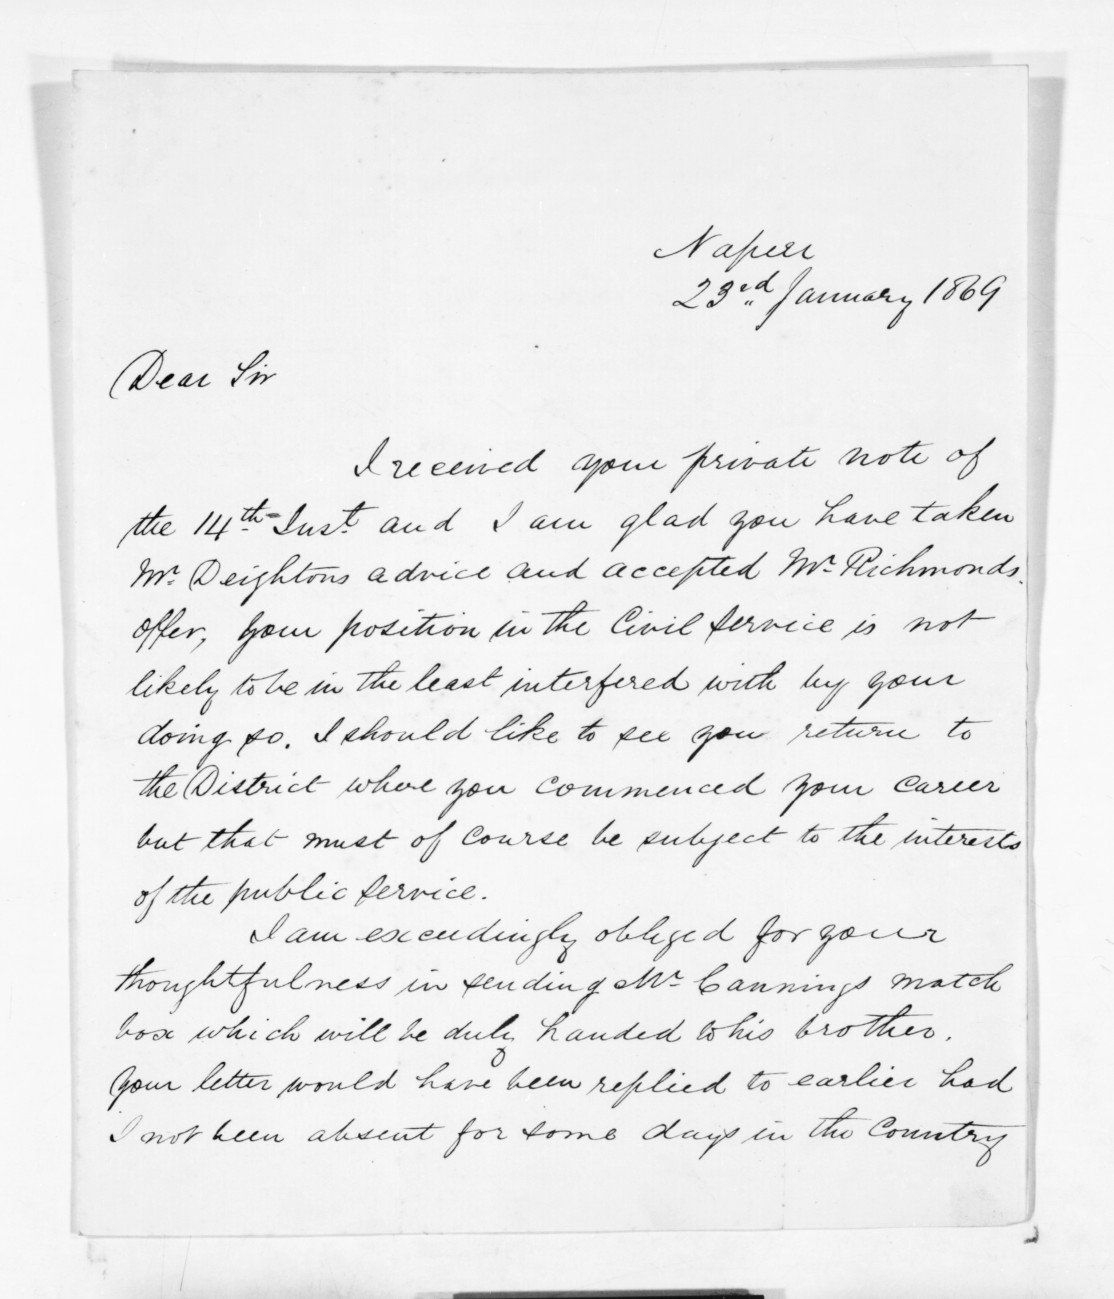 Napier
23rd January 1869
Dear Sir
I received your private note of
the 14th Inst. and I am glad you have taken
Mr. Deightons advice and accepted Mr. Richmonds
offer, your position in the Civil Service is not
likely to be in the least interfered with by your
doing so. I should like to see you return to
the District where you commenced your career
but that must of course be subject to the interests
of the public service.
I am exceedingly obliged for your
thoughtfulness in sending Mr. Cannings match
box which will be duly handed to his brother.
Your letter would have been replied to earlier had
I not been absent for some days in the Country